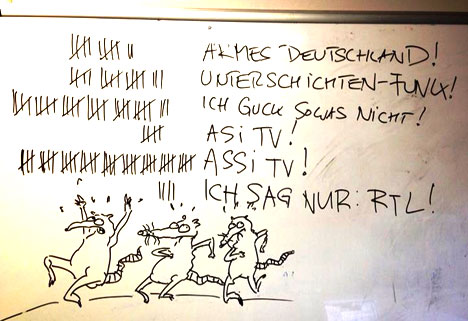 ARMES DEUTSCHLAND!
UNTERSCHICHTEN-FUNK!
ICH GUCK SOWAS NICHT!
ASI TV!
ASSI TV!
ICH SAG NUR: RTL!